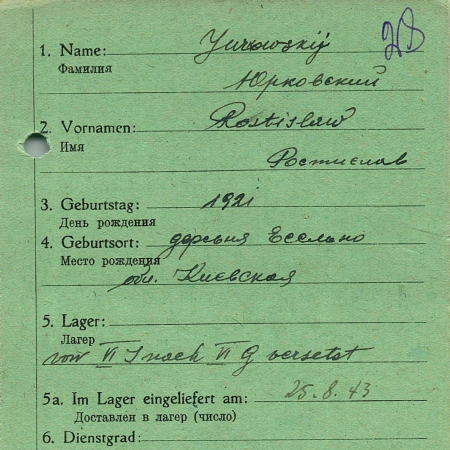 28
1. Name: Jurowskij
Фамилия
Юрковский
2. Vornamen: Rostislaw
Имя
Ростислав
3. Geburtstag: 1921
День рождения
4. Geburtsort: деревня
Место рождения
обл. Киевская
5. Lager:
Лагер
von VI J nach VI G versetzt
5a. Im Lager eingeliefert am: 25.8.43
Доставлен в лагер (число)
6. Dienstgrad: